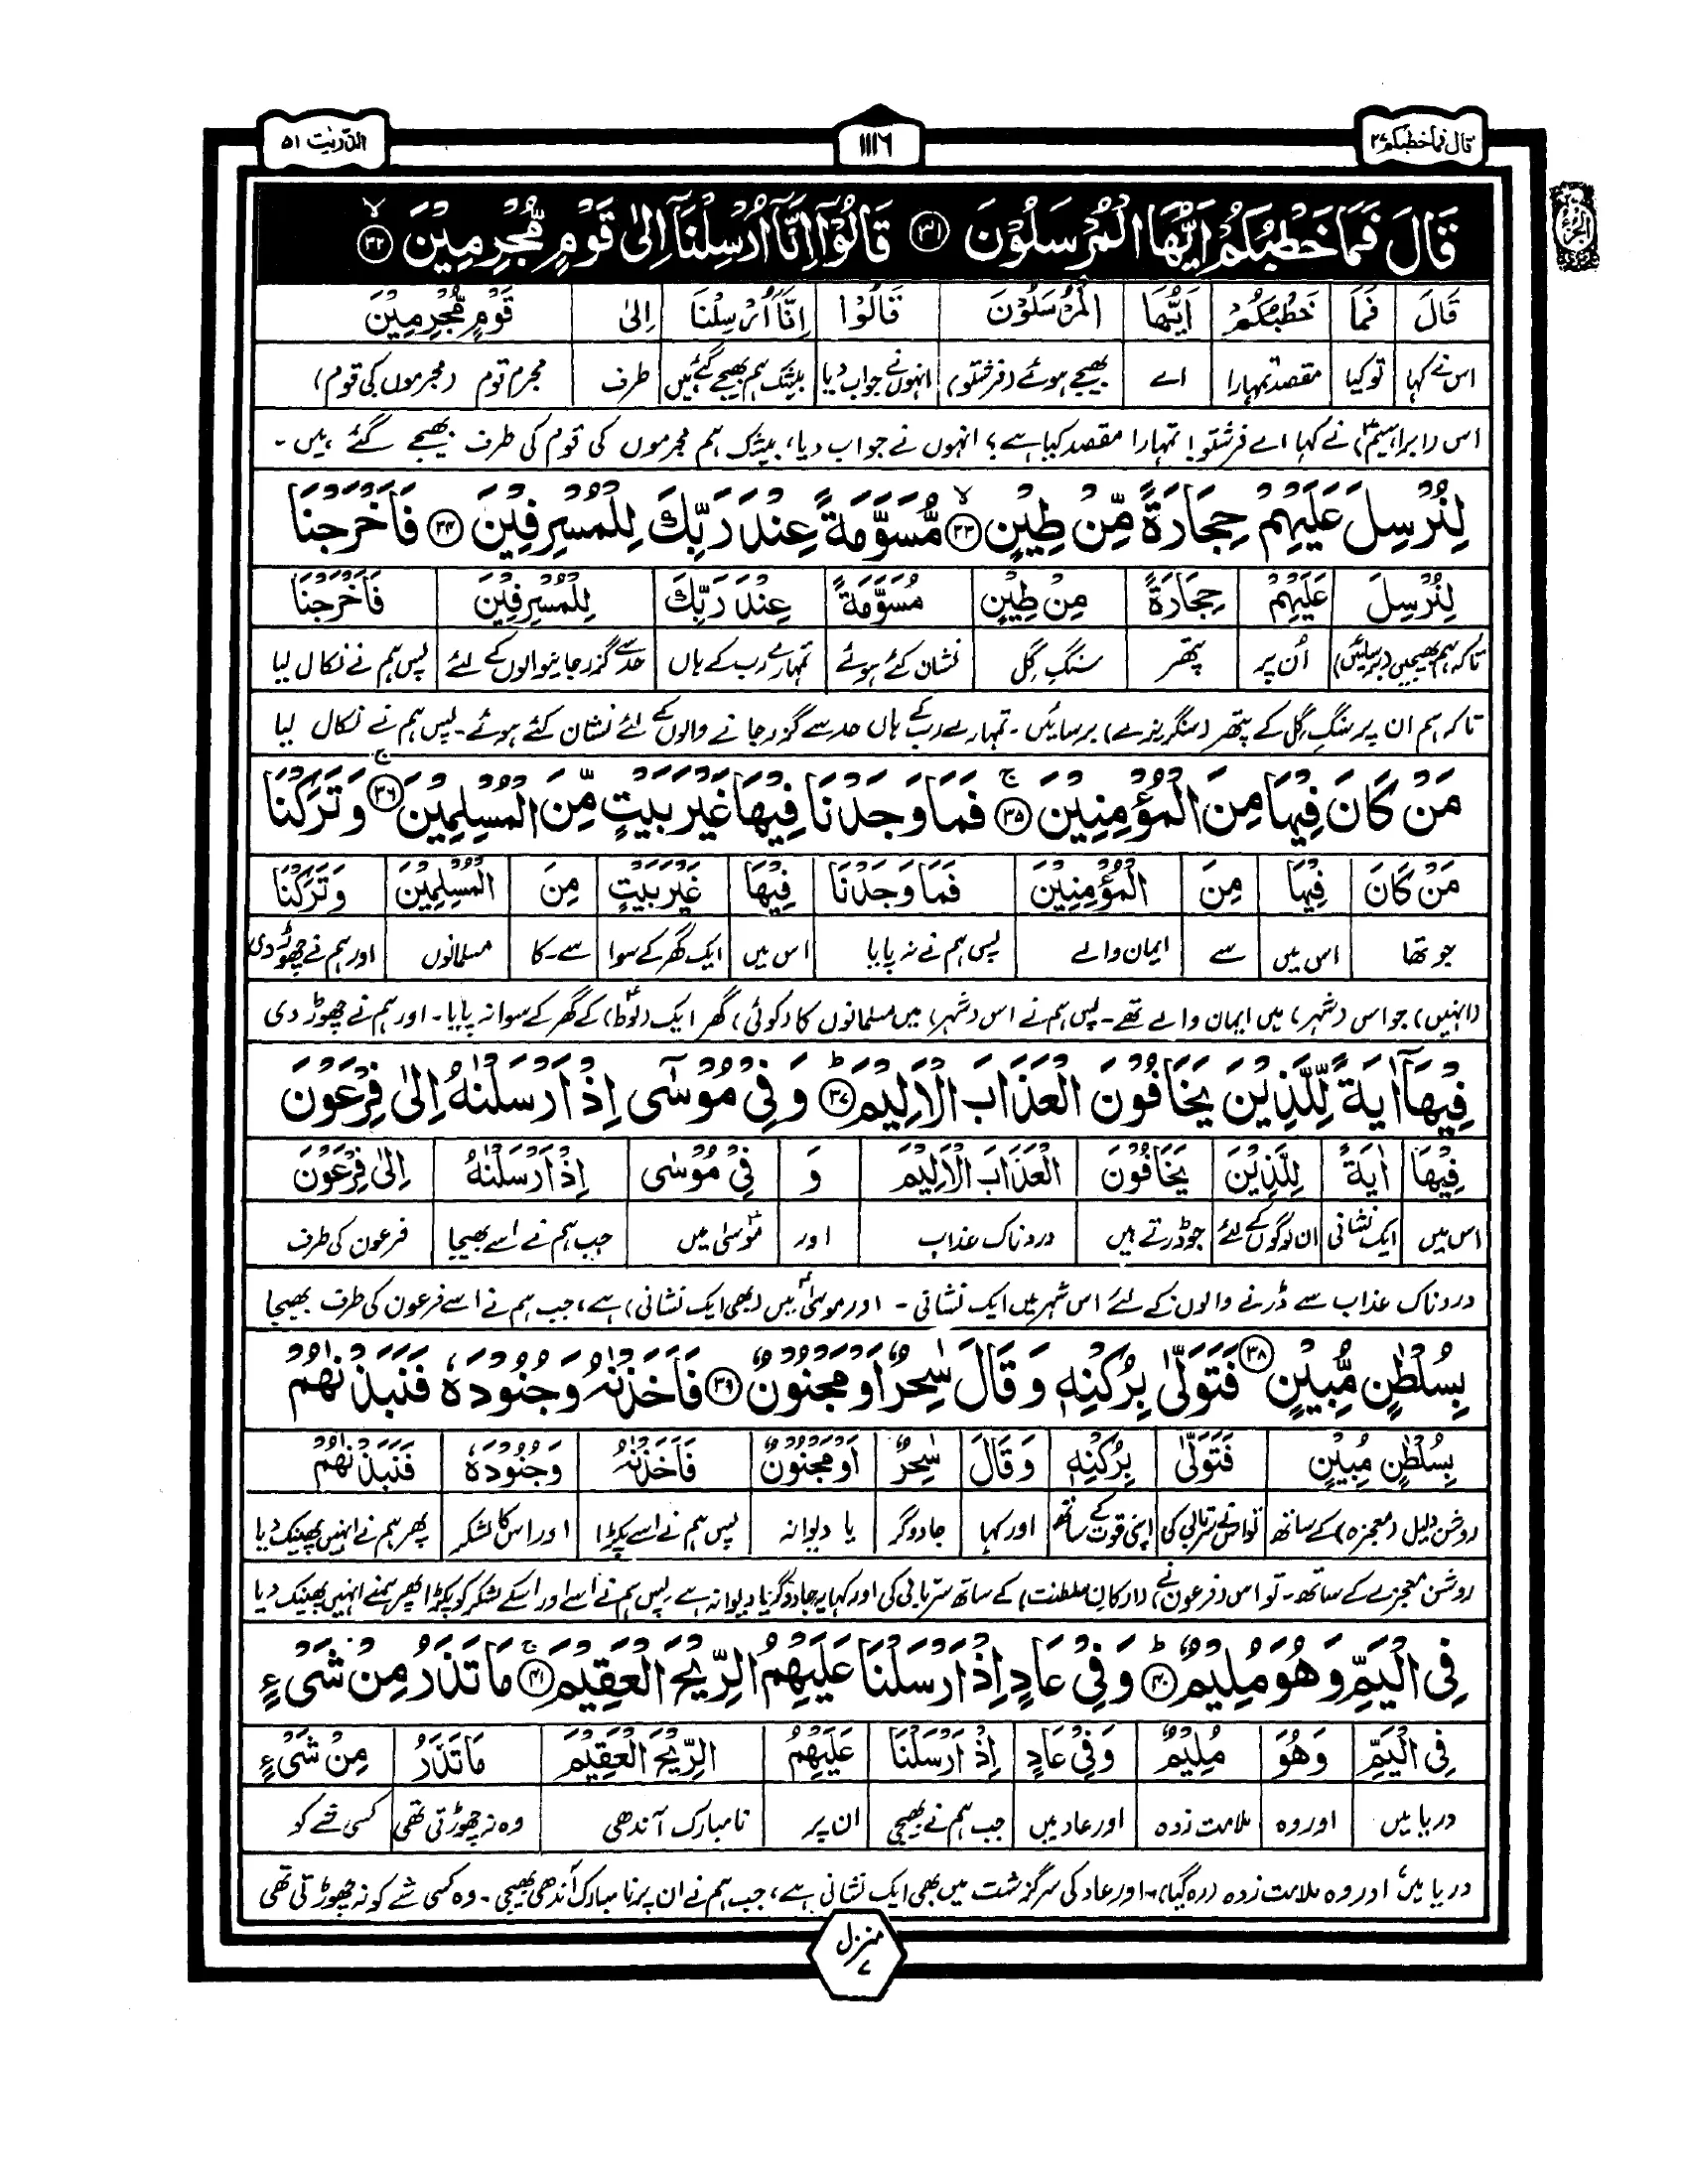 قال فما خطبكم ۲۷
۱۱۱۶
الذّٰریٰت ۵۱
الجزء
قَالَ فَمَا خَطْبُكُمْ اَيُّهَا الْمُرْسَلُوْنَ ۳۱ قَالُوْٓا اِنَّآ اُرْسِلْنَآ اِلٰى قَوْمٍ مُّجْرِمِيْنَ ۳۲
قَالَ فَمَا خَطْبُكُمْ اَيُّهَا الْمُرْسَلُوْنَ قَالُوْا اِنَّآ اُرْسِلْنَا اِلٰى قَوْمٍ مُّجْرِمِيْنَ
اس نے کہا تو کیا مقصد تمہارا اے بھیجے ہوئے (فرشتو) انہوں نے جواب دیا بیشک ہم بھیجے گئے ہیں طرف مجرم قوم (مجرموں کی قوم)
اس (ابراہیمؑ) نے کہا اے فرشتو! تمہارا مقصد کیا ہے؟ انہوں نے جواب دیا، بیشک ہم مجرموں کی قوم کی طرف بھیجے گئے ہیں۔
لِنُرْسِلَ عَلَيْهِمْ حِجَارَةً مِّنْ طِيْنٍ ۳۳ مُّسَوَّمَةً عِنْدَ رَبِّكَ لِلْمُسْرِفِيْنَ ۳۴ فَاَخْرَجْنَا
لِنُرْسِلَ عَلَيْهِمْ حِجَارَةً مِنْ طِيْنٍ مُسَوَّمَةً عِنْدَ رَبِّكَ لِلْمُسْرِفِيْنَ فَاَخْرَجْنَا
تاکہ ہم بھیجیں (برسائیں) اُن پر پتھر سنگِ گِل نشان کئے ہوئے تمہارے رب کے ہاں حد سے گزر جانیوالوں کے لئے پس ہم نے نکال لیا
تاکہ ہم ان پر سنگِ گِل کے پتھر (سنگریزے) برسائیں۔ تمہارے رب کے ہاں حد سے گزر جانے والوں کے لئے نشان کئے ہوئے۔ پس ہم نے نکال لیا
مَنْ كَانَ فِيْهَا مِنَ الْمُؤْمِنِيْنَ ج ۳۵ فَمَا وَجَدْنَا فِيْهَا غَيْرَ بَيْتٍ مِّنَ الْمُسْلِمِيْنَ ج ۳۶ وَتَرَكْنَا
مَنْ كَانَ فِيْهَا مِنَ الْمُؤْمِنِيْنَ فَمَا وَجَدْنَا فِيْهَا غَيْرَ بَيْتٍ مِنَ الْمُسْلِمِيْنَ وَتَرَكْنَا
جو تھا اس میں سے ایمان والے پس ہم نے نہ پایا اس میں ایک گھر کے سوا سے۔ کا مسلمانوں اور ہم نے چھوڑ دی
(انہیں) جو اس (شہر) میں ایمان والے تھے۔ پس ہم نے اس (شہر) میں مسلمانوں کا (کوئی) گھر ایک (لوطؑ) کے گھر کے سوا نہ پایا۔ اور ہم نے چھوڑ دی
فِيْهَآ اٰيَةً لِّلَّذِيْنَ يَخَافُوْنَ الْعَذَابَ الْاَلِيْمَ ط ۳۷ وَفِيْ مُوْسٰٓى اِذْ اَرْسَلْنٰهُ اِلٰى فِرْعَوْنَ
فِيْهَا اٰيَةً لِلَّذِيْنَ يَخَافُوْنَ الْعَذَابَ الْاَلِيْمَ وَ فِيْ مُوْسٰى اِذْ اَرْسَلْنٰهُ اِلٰى فِرْعَوْنَ
اس میں ایک نشانی ان لوگوں کے لئے جو ڈرتے ہیں دردناک عذاب اور موسٰیؑ میں جب ہم نے اسے بھیجا فرعون کی طرف
دردناک عذاب سے ڈرنے والوں کے لئے اس شہر میں ایک نشانی۔ اور موسیٰؑ میں (بھی ایک نشانی) ہے، جب ہم نے اسے فرعون کی طرف بھیجا
بِسُلْطٰنٍ مُّبِيْنٍ ۳۸ فَتَوَلّٰى بِرُكْنِهٖ وَقَالَ سٰحِرٌ اَوْ مَجْنُوْنٌ ۳۹ فَاَخَذْنٰهُ وَجُنُوْدَهٗ فَنَبَذْنٰهُمْ
بِسُلْطٰنٍ مُبِيْنٍ فَتَوَلّٰى بِرُكْنِهٖ وَقَالَ سٰحِرٌ اَوْ مَجْنُوْنٌ فَاَخَذْنٰهُ وَجُنُوْدَهٗ فَنَبَذْنٰهُمْ
روشن دلیل (معجزہ) کے ساتھ تو اس نے سرتابی کی اپنی قوت کے ساتھ اور کہا جادوگر یا دیوانہ پس ہم نے اسے پکڑا اور اس کا لشکر پھر ہم نے انہیں پھینک دیا
روشن معجزے کے ساتھ۔ تو اس (فرعون نے) (ارکانِ سلطنت) کے ساتھ سرتابی کی اور کہا یہ جادوگر یا دیوانہ ہے پس ہم نے اسے اور اسکے لشکر کو پکڑا پھر ہمنے انہیں پھینک دیا
فِي الْيَمِّ وَهُوَ مُلِيْمٌ ط ۴۰ وَفِيْ عَادٍ اِذْ اَرْسَلْنَا عَلَيْهِمُ الرِّيْحَ الْعَقِيْمَ ج ۴۱ مَا تَذَرُ مِنْ شَيْءٍ
فِي الْيَمِّ وَهُوَ مُلِيْمٌ وَفِيْ عَادٍ اِذْ اَرْسَلْنَا عَلَيْهِمُ الرِّيْحَ الْعَقِيْمَ مَا تَذَرُ مِنْ شَيْءٍ
دریا میں اور وہ ملامت زدہ اور عاد میں جب ہم نے بھیجی ان پر نامبارک آندھی وہ نہ چھوڑتی تھی کسی شے کو
دریا میں، اور وہ ملامت زدہ (رہ گیا)۔ اور عاد کی سرگزشت میں بھی ایک نشانی ہے، جب ہم نے ان پر نامبارک آندھی بھیجی۔ وہ کسی شے کو نہ چھوڑتی تھی
منزل ۷